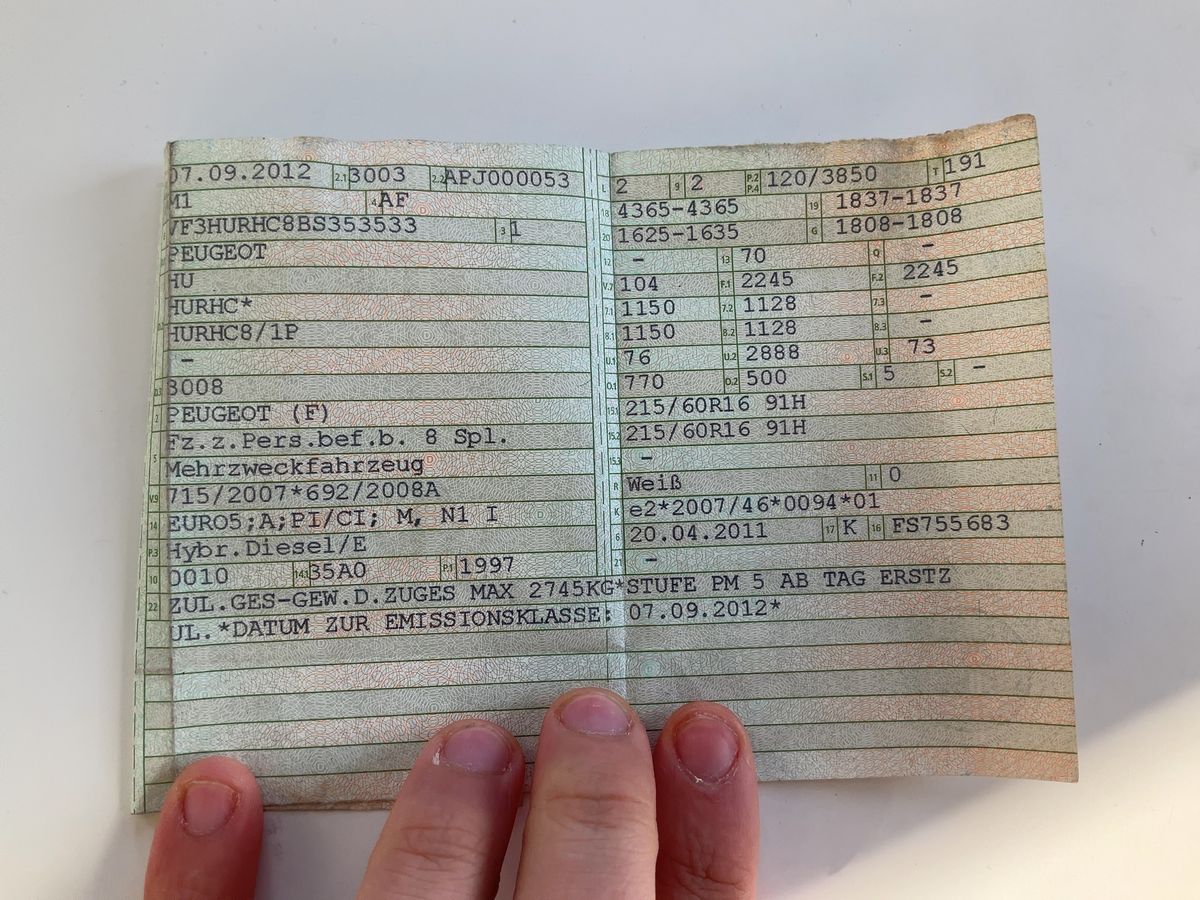 07.09.2012 2.1 3003 2.2 APJ000053
M1 4 AF
VF3HURHC8BS353533 3 1
PEUGEOT
HU
HURHC*
HURHC8/1P
-
D.3 3008
2 PEUGEOT (F)
Fz.z.Pers.bef.b. 8 Spl.
5 Mehrzweckfahrzeug
V.9 715/2007*692/2008A
14 EURO5;A;PI/CI; M, N1 I
P.3 Hybr.Diesel/E
10 0010 14.1 35A0 P.1 1997
22 ZUL.GES-GEW.D.ZUGES MAX 2745KG*STUFE PM 5 AB TAG ERSTZ
UL.*DATUM ZUR EMISSIONSKLASSE: 07.09.2012*
L 2 9 2 P.2 P.4 120/3850 T 191
18 4365-4365 19 1837-1837
20 1625-1635 G 1808-1808
12 - 13 70 Q -
V.7 104 F.1 2245 F.2 2245
7.1 1150 7.2 1128 7.3 -
8.1 1150 8.2 1128 8.3 -
U.1 76 U.2 2888 U.3 73
O.1 770 O.2 500 S.1 5 S.2 -
15.1 215/60R16 91H
15.2 215/60R16 91H
15.3 -
R Weiß 11 0
K e2*2007/46*0094*01
6 20.04.2011 17 K 16 FS755683
21 -